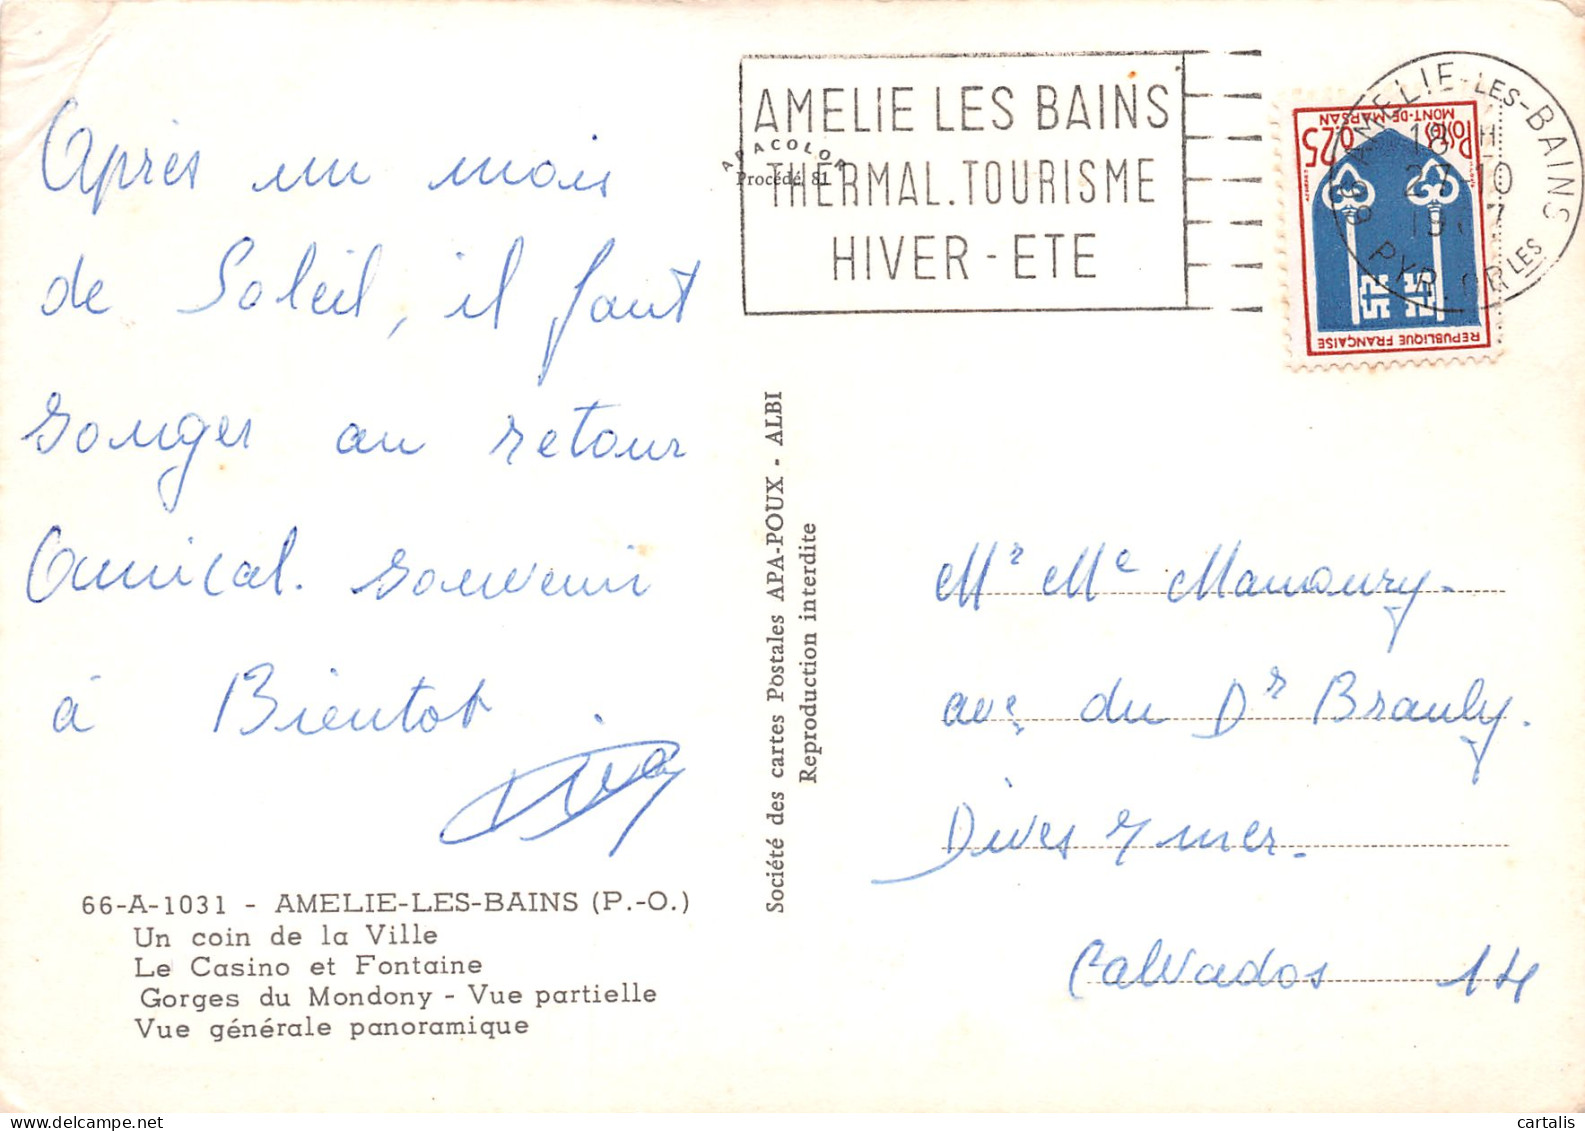 Après un mois
de Soleil, il faut
songer au retour
Amical. souvenir
à Bientot
66-A-1031 - AMELIE-LES-BAINS (P.-O.)
Un coin de la Ville
Le Casino et Fontaine
Gorges du Mondony - Vue partielle
Vue générale panoramique
Société des cartes Postales APA-POUX - ALBI
Reproduction interdite
APACOLOR
Procédé 81
AMELIE LES BAINS
THERMAL. TOURISME
HIVER - ETE
66 AMELIE-LES-BAINS
18 H
27-10
PYR. ORLES
POSTES 0,25
MONT-DE-MARSAN
REPUBLIQUE FRANÇAISE
Mr Me Mamoury.
ave du Dr Brauly.
Dives s/ mer.
Calvados 14
cartalis
www.delcampe.net